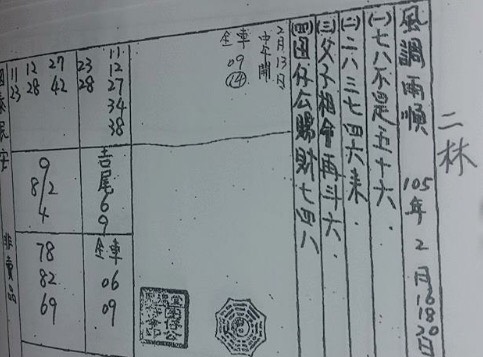 二林
風調雨順 105年2月16 18 20日
(一)七八不是五十六.
(二)二八三七四六来.
(三)父子相會再斗六.
(四)囝仔公賜財七四八
2月13日
中午開
全車
09
14
11
12
27
34
38
23
28
27
42
12
28
11
23
吉尾69
9
8/2
4
全車
06
09
78
82
69
國泰民安
非賣品